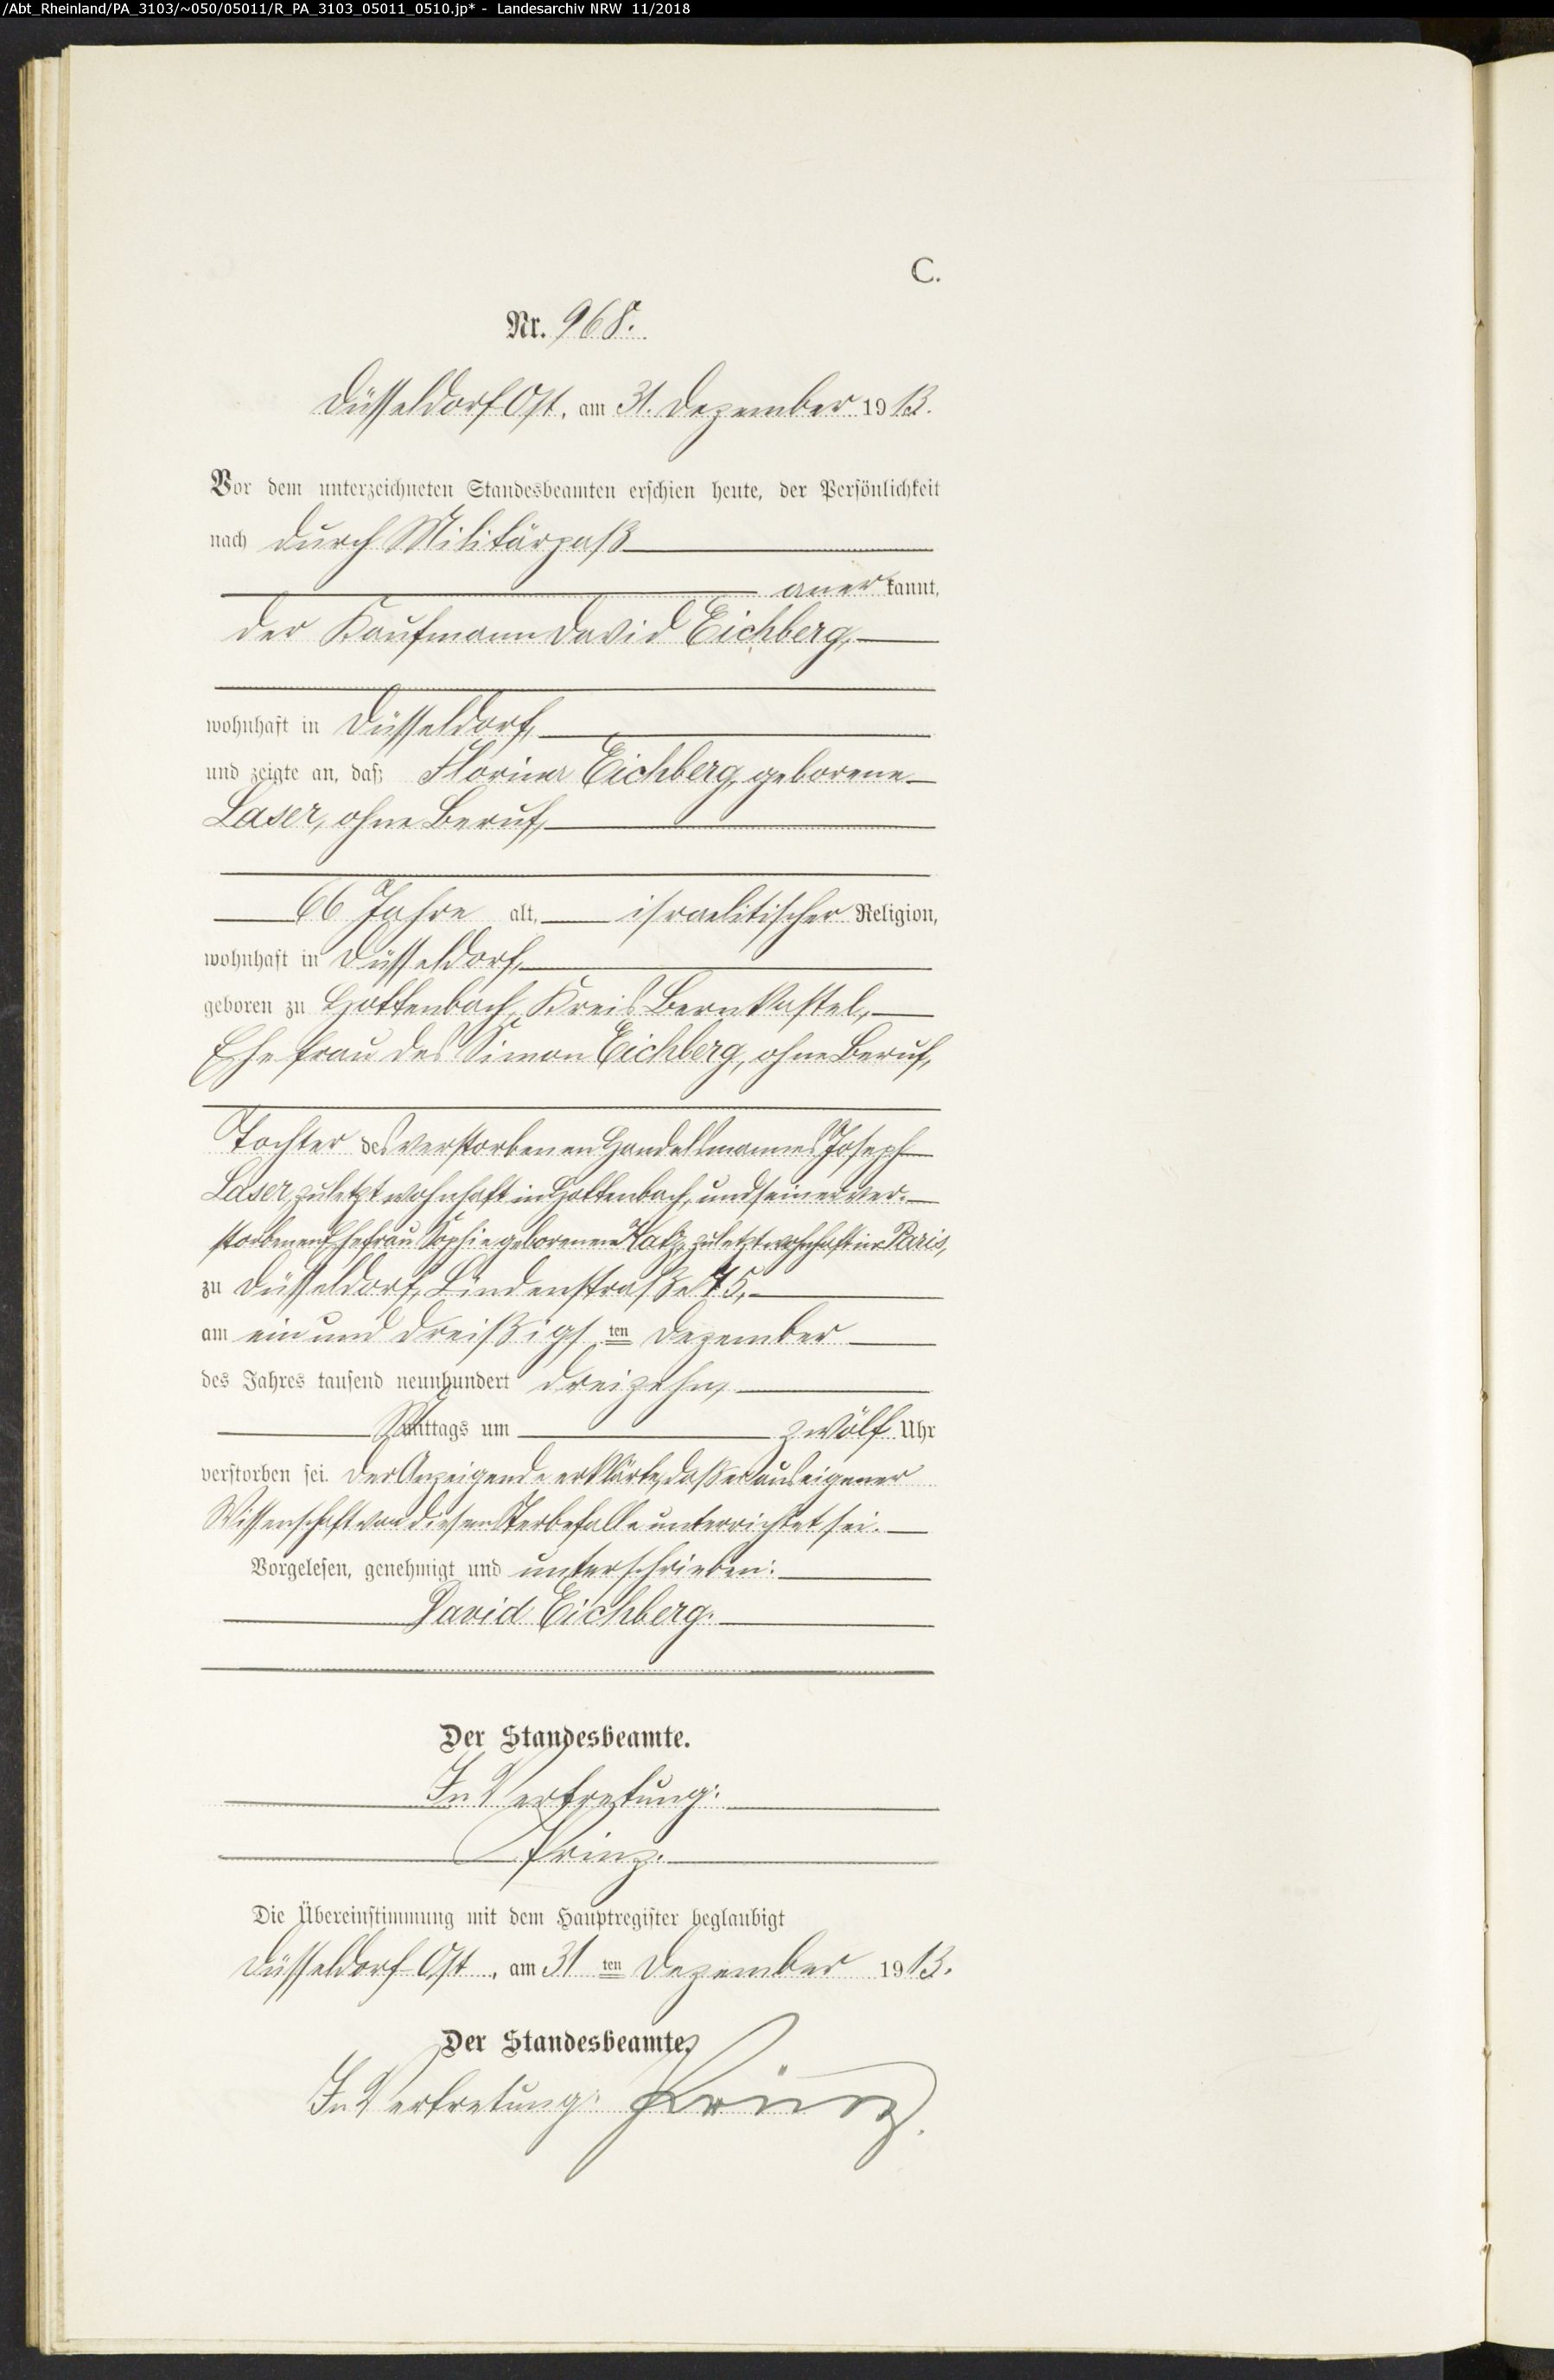 /Abt_Rheinland/PA_3103/~050/05011/R_PA_3103_05011_0510.jp* - Landesarchiv NRW 11/2018
C.
Nr. 968.
Düsseldorf-Ost, am 31. Dezember 1913.
Vor dem unterzeichneten Standesbeamten erschien heute, der Persönlichkeit
nach durch Militärpaß
anerkannt,
der Kaufmann David Eichberg,
wohnhaft in Düsseldorf,
und zeigte an, daß Florina Eichberg, geborene
Laser, ohne Beruf,
66 Jahre alt, israelitischer Religion,
wohnhaft in Düsseldorf,
geboren zu Hottenbach, Kreis Bernkastel,
Ehefrau des Simon Eichberg, ohne Beruf,
Tochter des verstorbenen Handelsmannes Joseph
Laser, zuletzt wohnhaft in Hottenbach, und seiner ver-
storbenen Ehefrau Sophie geborenen Katz, zuletzt wohnhaft in Paris,
zu Düsseldorf, Lindenstraße 75,
am ein und dreißigsten Dezember
des Jahres tausend neunhundert dreizehn,
mittags um zwölf Uhr
verstorben sei. Der Anzeigende erklärte, daß er aus eigener
Wissenschaft von diesem Sterbefalle unterrichtet sei.
Vorgelesen, genehmigt und unterschrieben:
David Eichberg.
Der Standesbeamte.
In Vertretung:
Prinz.
Die Übereinstimmung mit dem Hauptregister beglaubigt
Düsseldorf-Ost, am 31ten Dezember 1913.
Der Standesbeamte.
In Vertretung: Prinz.